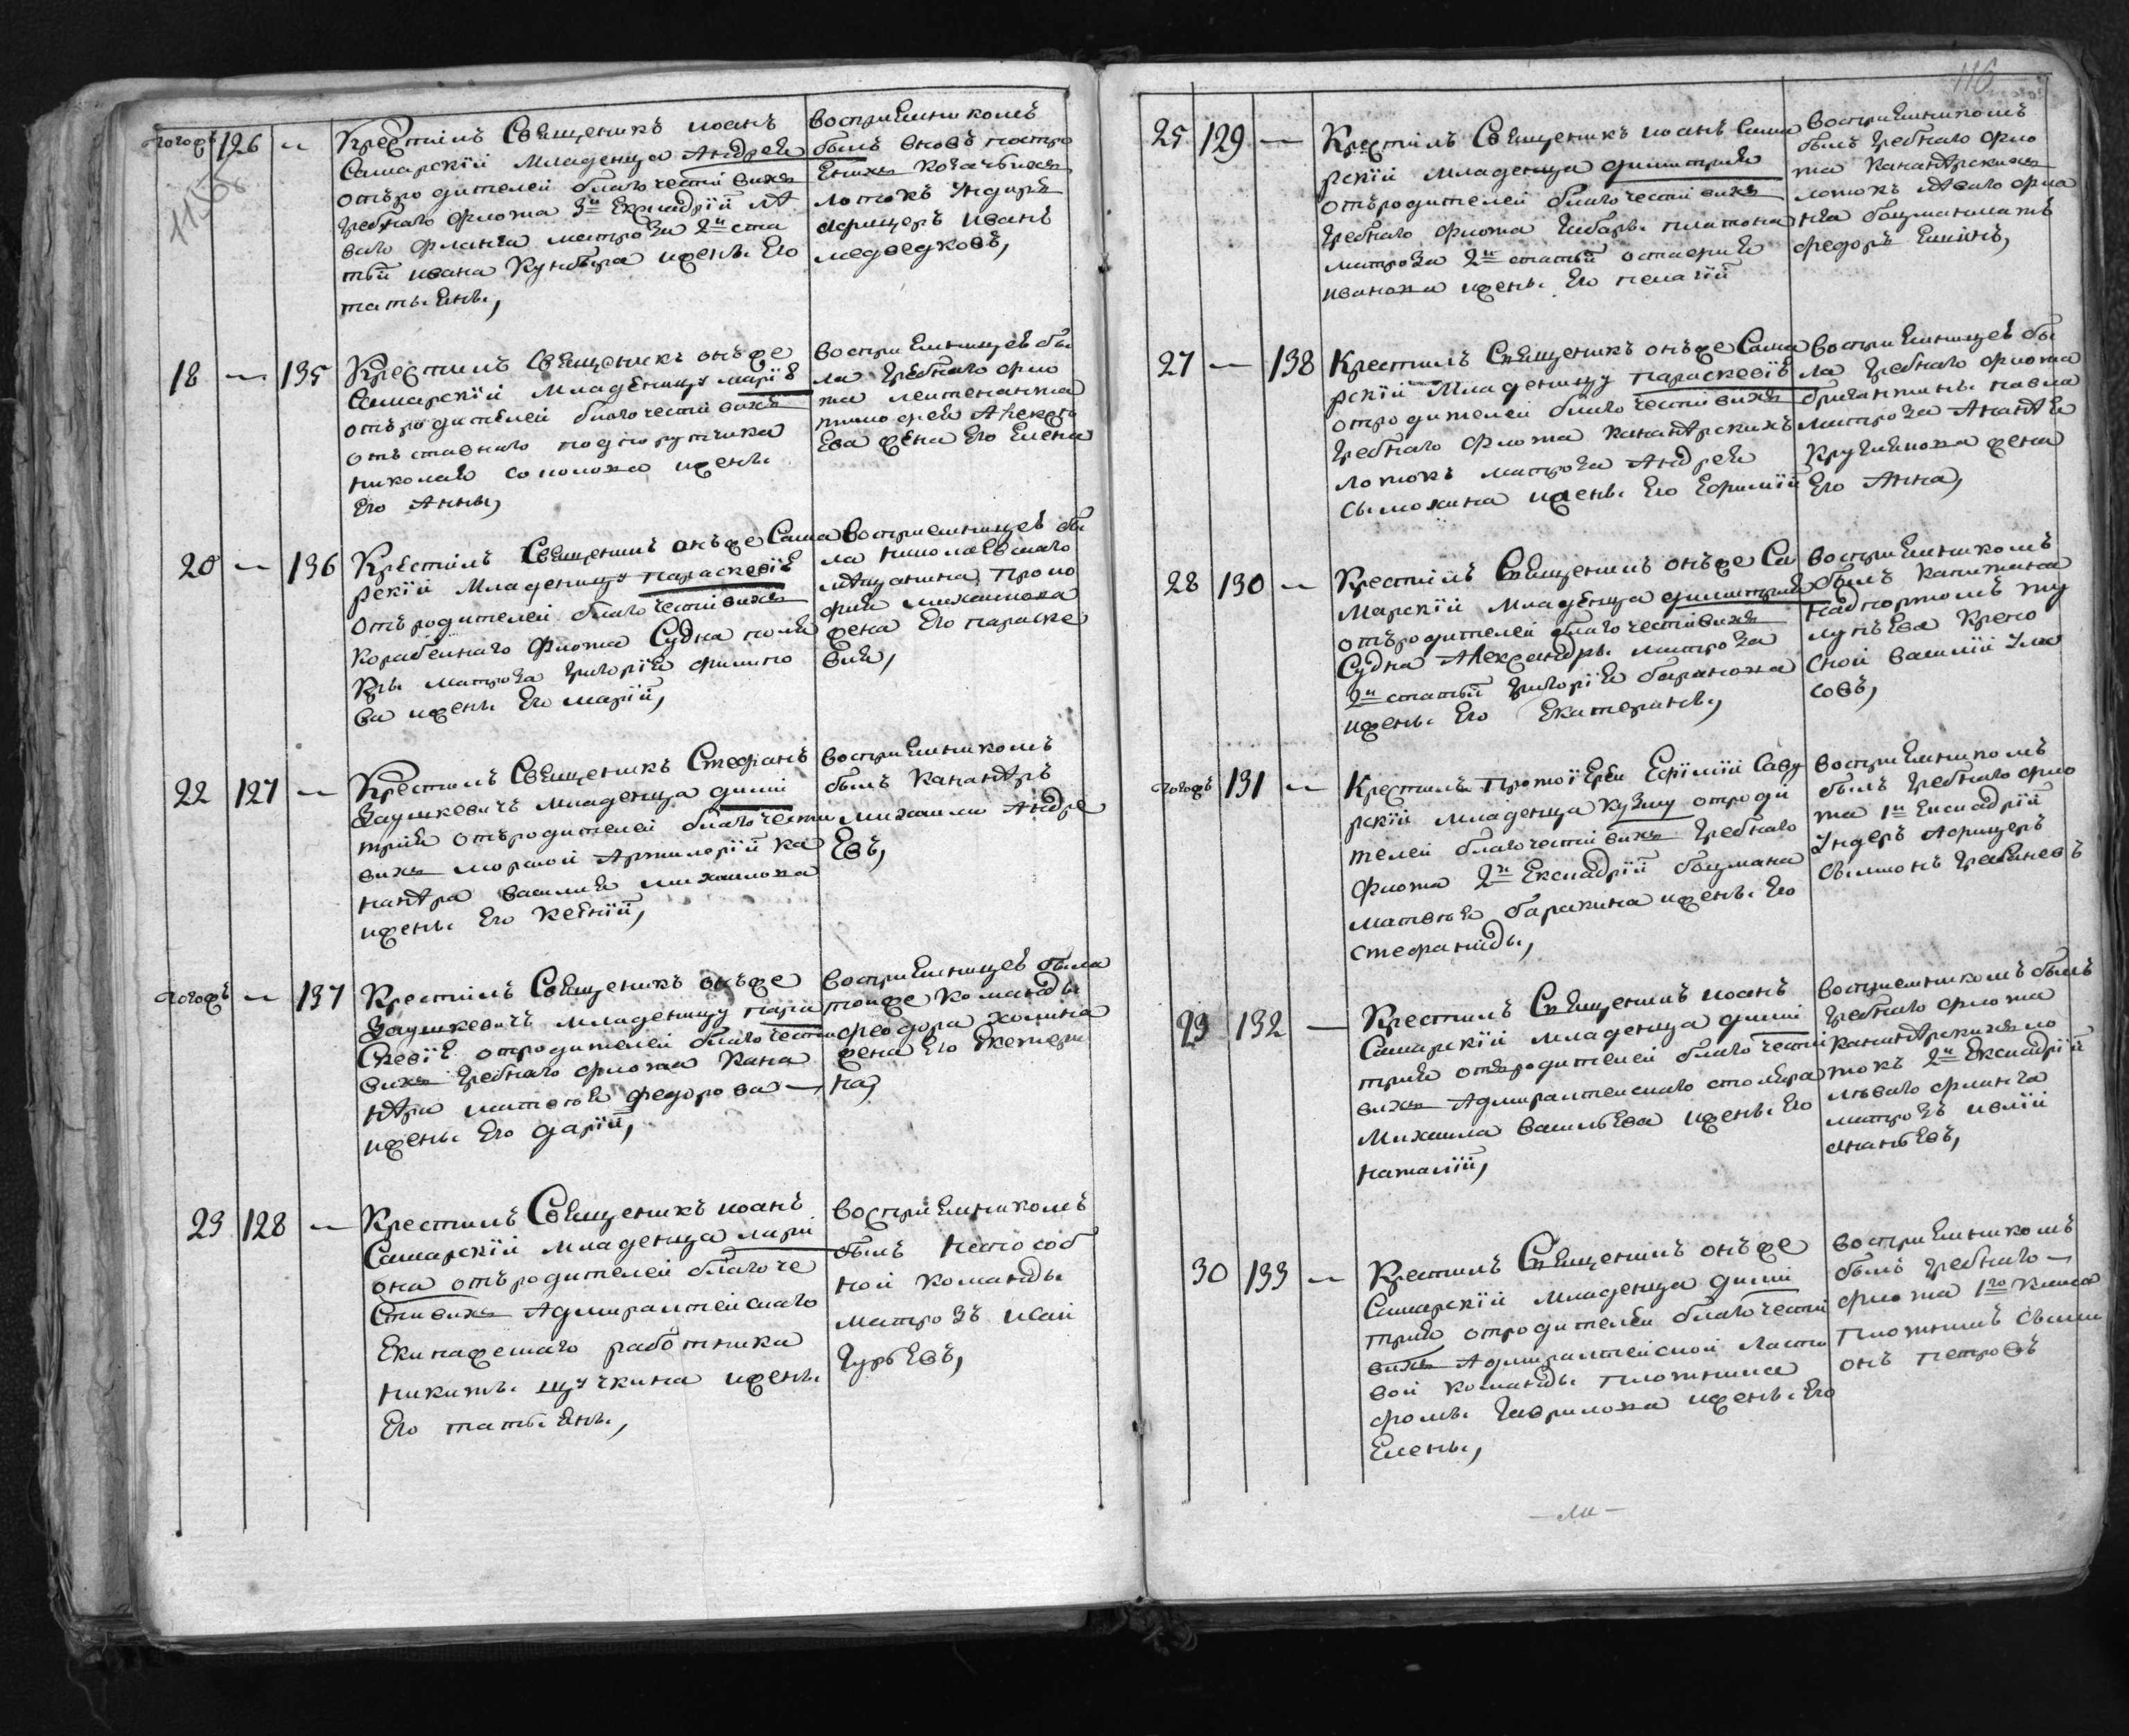 тогожъ 126 — Крестилъ Священикъ иоанъ
Самарскїй младенца Андрея
отъродителей благочестивихъ
гребнаго флота 3й Ескадрїй лѣ
ваго фланга матроза 2й ста
тьй ивана Кунбера иженъ его
татьяни,
воспрїемникомъ
былъ вновъ постро
Енихъ
лотокъ Ундиръ
офицеръ иванъ
медведковъ,
18 — 135 Крестилъ Священикъ онъже
Самарскїй младеницу марїю
отъродителей благочестивихъ
отъставнаго подпорутчика
николая соколова иженъ
Его Анны,
воспрїемницею бы
ла гребнаго фло
та лейтенанта
тимофея Алексе
Ева жена Его Елена
20 — 136 Крестилъ Священикъ онъже Сама
рскїй младеницу параскевїю
отъродителей благочестивихъ
корабелнаго флота Судна
матроза григорїя филипо
ва иженъ Его марїй,
воспрїемницею бы
ла николаевскаго
мѣщанина Проко
фия михайлова
жена Его параске
вия,
22 127 — Крестилъ Священикъ Стефанъ
Заушкевичъ младенца дими
трия отъродителей благочести
вихъ морской Артилерїй ка
нанѣра василия михайлова
иженъ Его Ксенїй,
воспрїемникомъ
былъ Кананѣръ
михаила Андре
Евъ,
тогожъ — 137 Крестилъ Священикъ онъже
Заушкевичъ младеницу пара
скевїю отродителей благочести
вихъ гребнаго флота Кана
нѣра матвея федорова —
иженъ Его дарїй,
воспрїемницею была
тойже команды
феодора холина
жена Его Екатери
на,
23 128 — Крестилъ Священикъ иоанъ
Самарскїй младенца мари
она отъродителей благоче
стивихъ Адмиралтейскаго
Екипажескаго работника
никиты щучкина иженъ
Его татьяни,
воспрїемникомъ
былъ
ной команды
матрозъ исай
гурьевъ,
116
25 129 — Крестилъ Священикъ иоанъ Сама
рскїй младенца димитрия
отъродителей благочестивихъ
гребнаго флота
матроза 2й статьй остафия
иванова иженъ Его пелагїй
воспрїемникомъ
былъ гребнаго фло
та Кананѣрскихъ
лотокъ лѣваго фла
нга боцманматъ
федоръ
27 — 138 Крестилъ Священикъ онъже Сама
рскїй младеницу параскевїю
отродителей благочестивихъ
гребнаго флота кананѣрскихъ
лотокъ матроза Андрея
иженъ Его Ефимїй
воспрїемницею бы
ла гребнаго флота
бригантины павла
матроза
жена
Его Анна,
28 130 — Крестилъ Священикъ онъже Са
марскїй младенца димитрия
отъродителей благочестивихъ
Судна Александръ матроза
2й статьй григорїя баранова
иженъ Его Екатерины,
воспрїемникомъ
былъ капитана
надпортомъ
Крепо
сной василїй Ула
совъ,
тогожъ 131 — Крестилъ Протоїерей Ефїмїй Саву
рскїй младенца кузму отроди
телей благочестивихъ гребнаго
флота 2й Ескадрїй боцмана
матвея баракина иженъ Его
стефаниды,
воспрїемникомъ
былъ гребнаго фло
та 1й Ескадрїй
Ундеръ Афицеръ
29 132 — Крестилъ Священикъ иоанъ
Самарскїй младенца дими
трия отъродителей благочести
вихъ Адмиралтейскаго столяра
Михаила васильева иженъ Его
наталїй,
воспрїемникомъ былъ
гребнаго флота
кананѣрскихъ ло
токъ 2й Ескадрїй
лѣваго фланга
матрозъ
30 133 — Крестилъ Священикъ онъже
Самарскїй младенца дими
трия отродителей благочести
вихъ Адмиралтейской ласто
вой команды плотника
фомы гаврилова иженъ Его
Елены,
воспрїемникомъ
былъ гребнаго —
флота 1го класа
плотникъ Сими
онъ петровъ